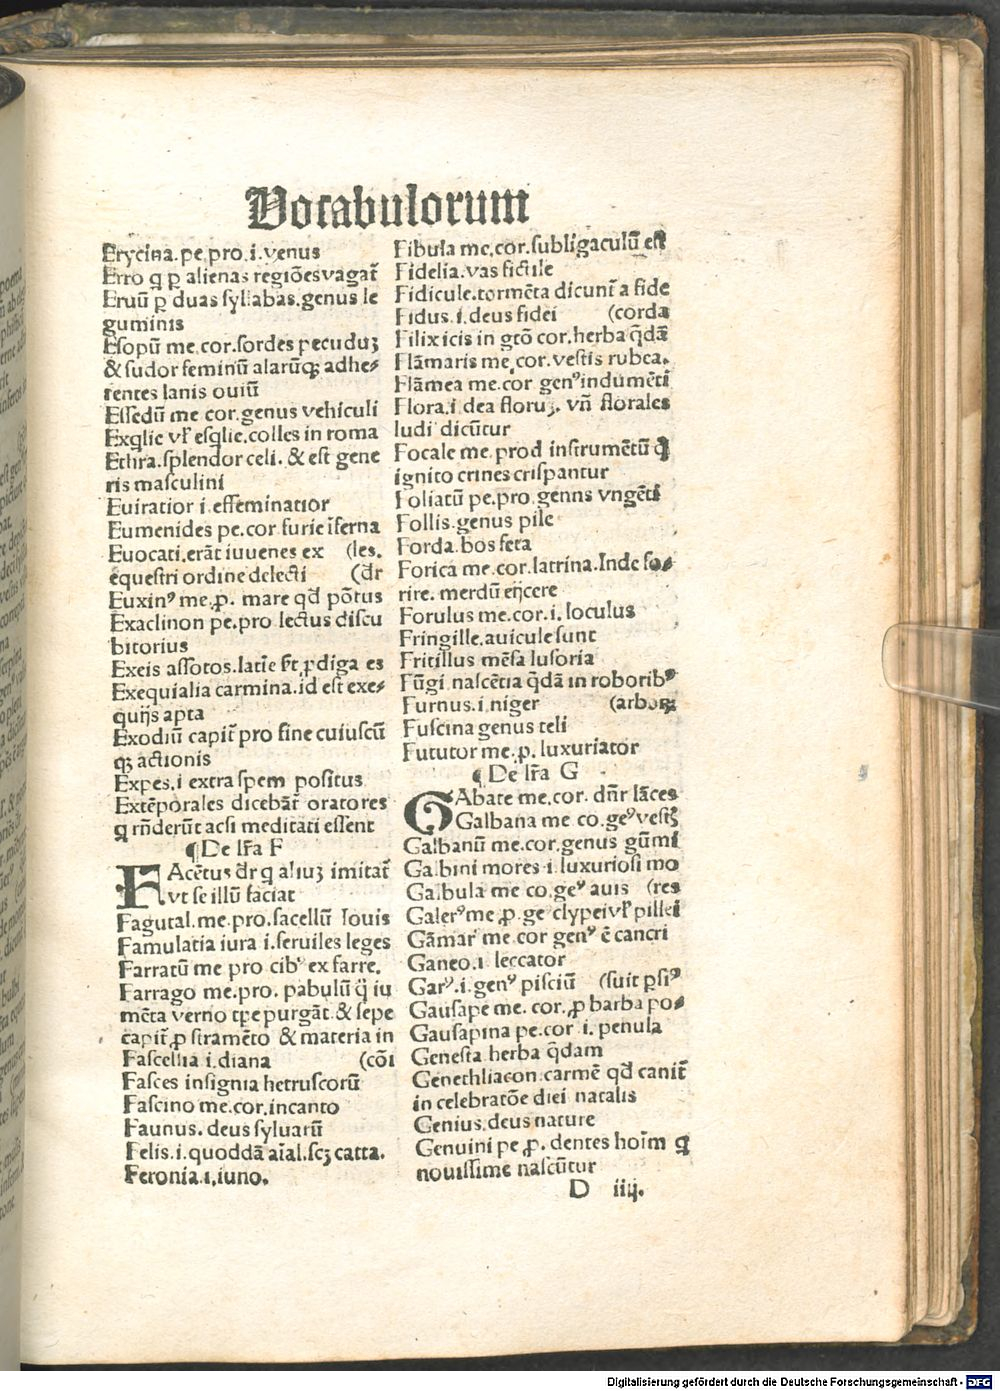 Vocabulorum
Erycina.pe.pro.i.venus
Erro q ꝑ alienas regiōes vagat᷑
Eruū ꝑ duas syllabas.genus le
guminis
Esopū me.cor.sordes pecuduꝫ
& sudor feminū alarūqꝫ adhe⸗
rentes lanis ouiū
Essedū me cor.genus vehiculi
Exqlie vl̓ esqlie.colles in roma
Ethra.splendor celi. & est gene
ris masculini
Euiratior i.effeminatior
Eumenides pe.cor furie īferna
Euocati.erāt iuuenes ex (les.
equestri ordine delecti (dr̄
Euxinꝰ me.ꝓ. mare qđ pōtus
Exaclinon pe.pro lectus discu
bitorius
Exeis assotos.latīe ꝓdiga es
Exequialia carmina.id est exe⸗
quijs apta
Exodiū capit᷑ pro fine cuiuscū
qꝫ actionis
Expes.i extra spem positus
Extēporales dicebāt᷑ oratores
q rn̄derūt acsi meditati essent
¶De lr̄a F
FAcētus dr̄ q aliuꝫ imitat᷑
vt se illū faciat
Fagutal.me.pro.sacellū Iouis
Famulatia iura i.seruiles leges
Farratū me pro cibꝰ ex farre.
Farrago me.pro. pabulū q̄ iu
mēta verno tꝑe purgāt & sepe
capit᷑ ꝓ stramēto & materia in
Fascellia i.diana (cōi
Fasces insignia hetruscorū
Fascino me.cor.incanto
Faunus. deus syluarū
Felis.i.quoddā aīal.scꝫ catta.
Feronia.i.iuno.
Fibula me.cor.subligaculū est
Fidelia.vas fictile
Fidicule.tormēta dicunt᷑ a fide
Fidus.i.deus fidei (corda
Filix icis in gtō cor.herba q̄dā
Flāmaris me.cor.vestis rubea.
Flāmea me.cor genꝰ indumēti
Flora.i dea floruꝫ. vn̄ florales
ludi dicūtur
Focale me.prod instrumētū q̄
ignito crines crispantur
Foliatū pe.pro genns vngēti
Follis.genus pile
Forda.bos feta
Forica me.cor.latrina.Inde fo⸗
rire. merdū eijcere
Forulus me.cor.i.loculus
Fringille.auicule sunt
Fritillus mēsa lusoria
Fūgi nascētia q̄dā in roboribꝰ
Furnus.i.niger (arboꝝ
Fuscina genus teli
Fututor me.ꝓ. luxuriator
¶De lr̄a G
GAbate me.cor. dn̄r lāces
Galbana me co.geꝰ vestꝭ
Galbanū me.cor.genus gūmi
Galbini mores i luxuriosi mo
Galbula me co.geꝰ auis (res
Galerꝰ me.ꝓ ge clypei vl̓ pillei
Gāmar᷑ me cor genꝰ ē cancri
Ganeo.i leccator
Garꝰ.i.genꝰ pisciū (suit ꝑsiꝰ
Gausape me. cor.ꝓ barba po⸗
Gausapina pe.cor i. penula
Genesta herba q̄dam
Genethliacon.carmē qđ canit᷑
in celebratōe diei natalis
Genius.deus nature
Genuini pe.ꝓ. dentes hoīm q
nouissime nascūtur
D iiij.
Digitalisierung gefördert durch die Deutsche Forschungsgemeinschaft - DFG